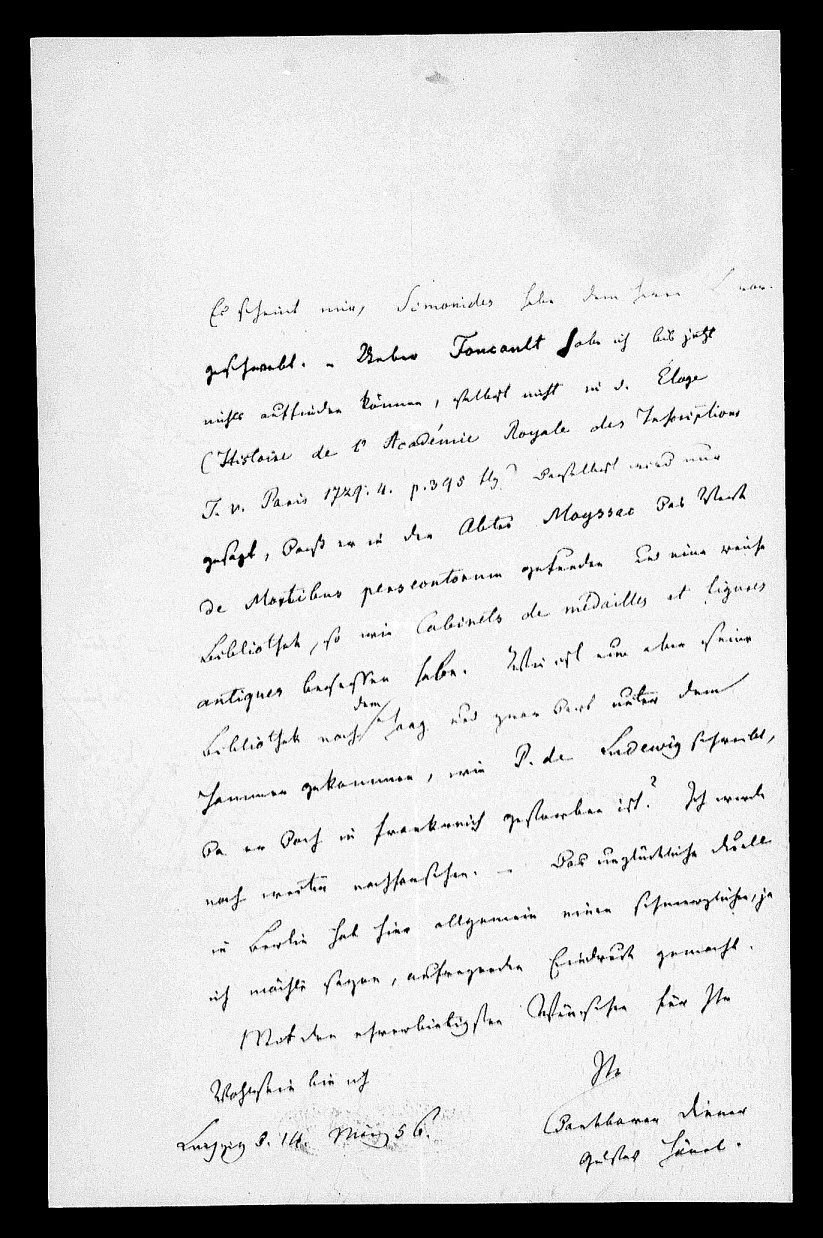 Es scheint mir, Simonides habe dem Herrn
geschwebt. – Ueber Foucault habe ich bis jetzt
nichts auffinden können, selbst nicht in d. Éloge
(Histoire de l'Académie Royale des Inscriptions
T. V. Paris 1729. 4. p. 395 flg.) Daselbst wird nur
gesagt, daß er in der Abtei Moyssac das Werk
de Mortibus persecutorum gefunden und eine reiche
Bibliothek, so wie Cabinets de médailles et figures
antiques besessen habe. Wie ist nun aber seine
Bibliothek nach dem Haag und zwar dort unter den
Hammer gekommen, wie P. de Ludewig schreibt,
da er doch in Frankreich gestorben ist? Ich werde
noch weiter nachforschen. – Das unglückliche Duell
in Berlin hat hier allgemein einen schmerzlichen, ja
ich möchte sagen, aufregenden Eindruck gemacht.
Mit den ehrerbietigsten Wünschen für Ihr
Wohlsein bin ich
Ihr
Leipzig d. 14. März 56.
dankbarer Diener
Gustav Hänel.